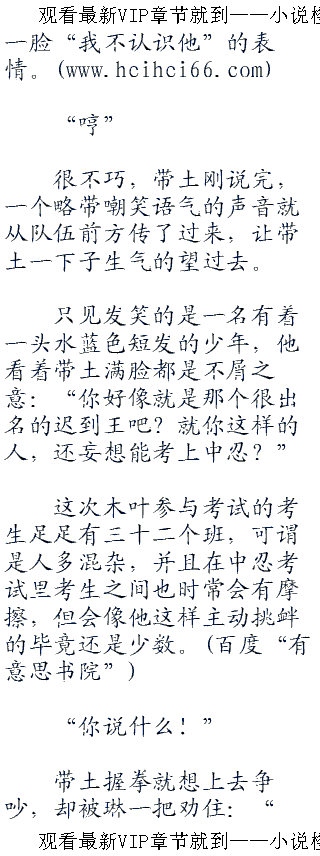 观看最新VIP章节就到——小说
一脸“我不认识他”的表
情。(www.hcihci66.com)
“哼”
很不巧，带土刚说完，
一个略带嘲笑语气的声音就
从队伍前方传了过来，让带
土一下子生气的望过去。
只见发笑的是一名有着
一头水蓝色短发的少年，他
看着带土满脸都是不屑之
意：“你好像就是那个很出
名的迟到王吧？就你这样的
人，还妄想能考上中忍？”
这次木叶参与考试的考
生足足有三十二个班，可谓
是人多混杂，并且在中忍考
试里考生之间也时常会有摩
擦，但会像他这样主动挑衅
的毕竟还是少数。(百度“有
意思书院”)
“你说什么！”
带土握拳就想上去争
吵，却被琳一把劝住：“
观看最新VIP章节就到——小说